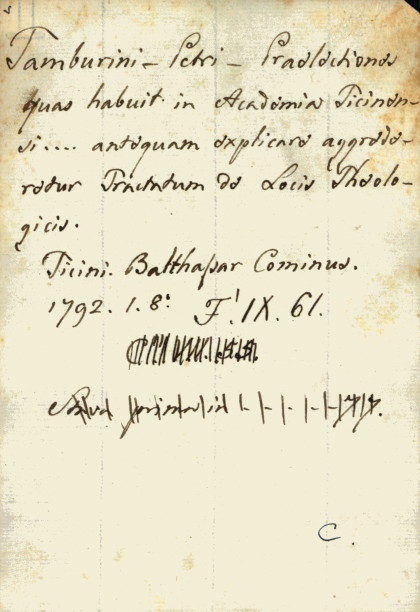 Tamburini - Petri - Praelectiones
quas habuit in Academia Ticinen-
si.... antequam explicare aggrede-
retur Tractatum de Locis Theolo-
gicis.
Ticini. Balthasar Cominus.
1792. 1. 8º F! IX. 61.
C.